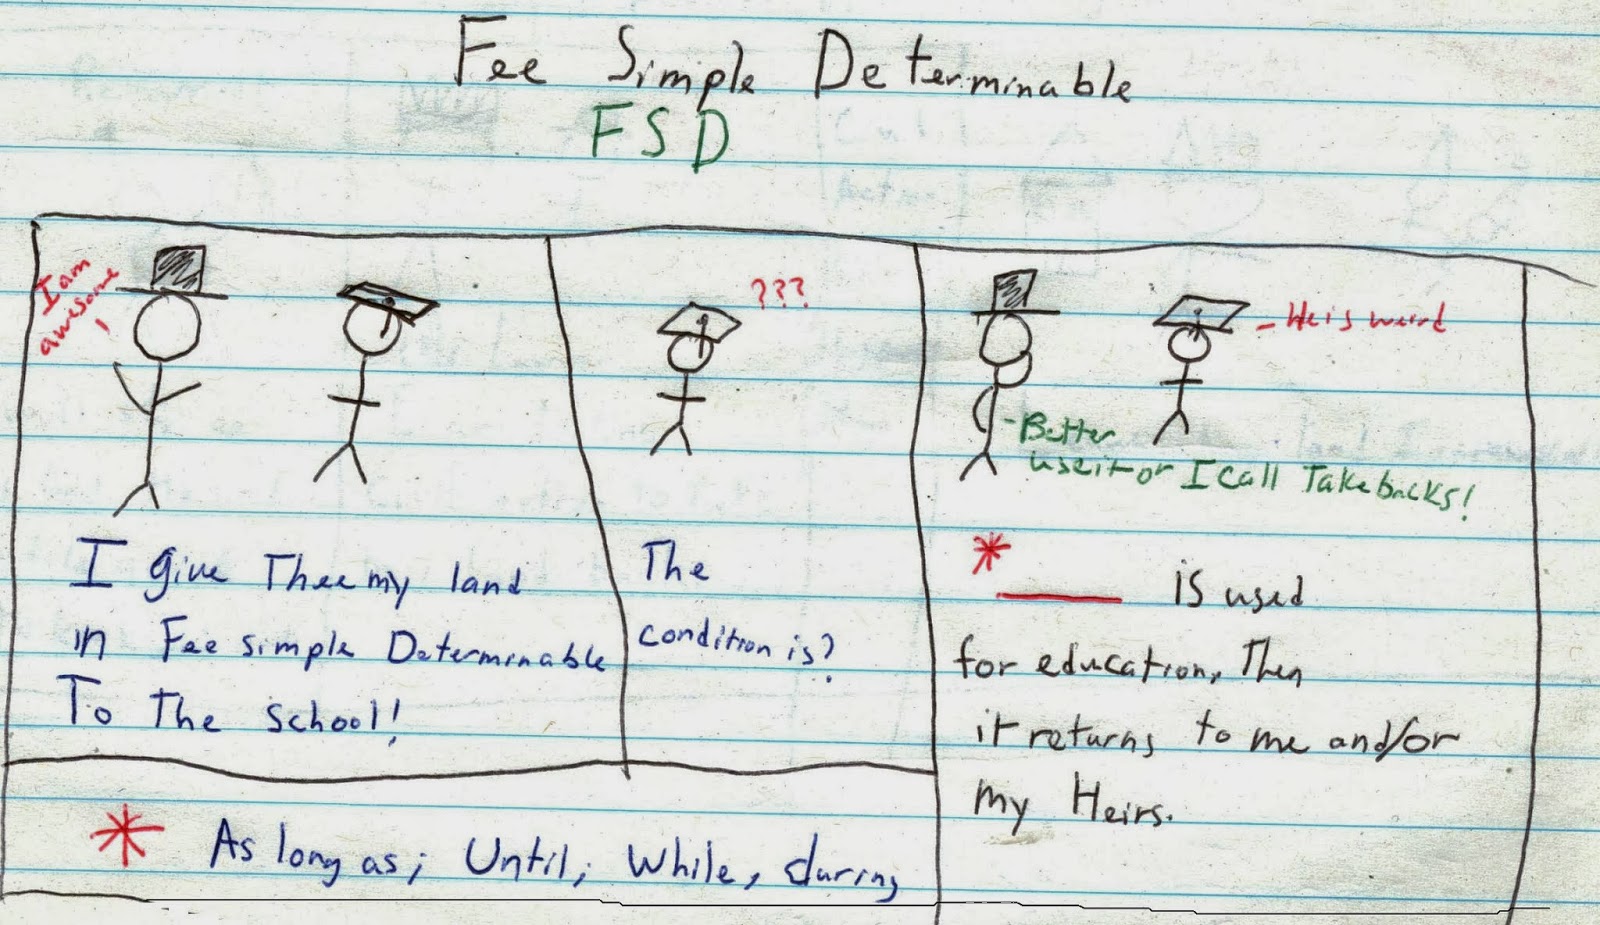 Fee Simple Determinable
FSD
I am
awesome
!
I give Thee my land
in Fee simple Determinable
To The school!
???
The
condition is?
- He is weird
- Better
use it or I call Takebacks!
* ______ is used
for education, Then
it returns to me and/or
my Heirs.
* As long as; Until; While, during